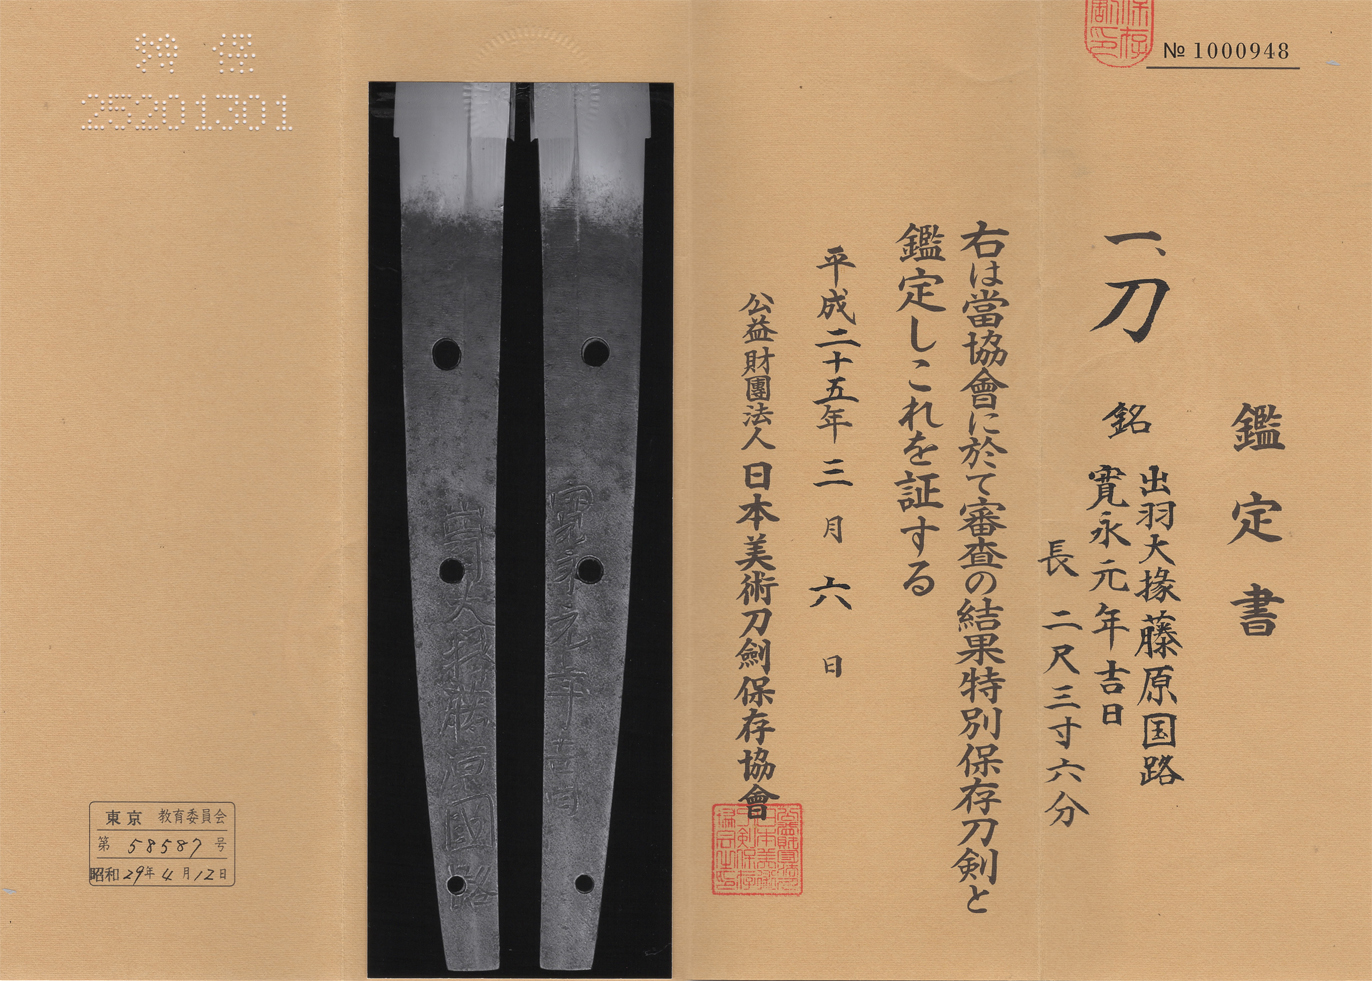 № 1000948
鑑定書
一、刀
銘 出羽大掾藤原国路
寛永元年吉日
長 二尺三寸六分
右は當協會に於て審査の結果特別保存刀剣と
鑑定しこれを証する
平成二十五年三月六日
公益財團法人日本美術刀劍保存協會
寛永元年吉日
出羽大掾藤原國路
特保
25201301
東京 教育委員会
第 58587 号
昭和29年4月12日